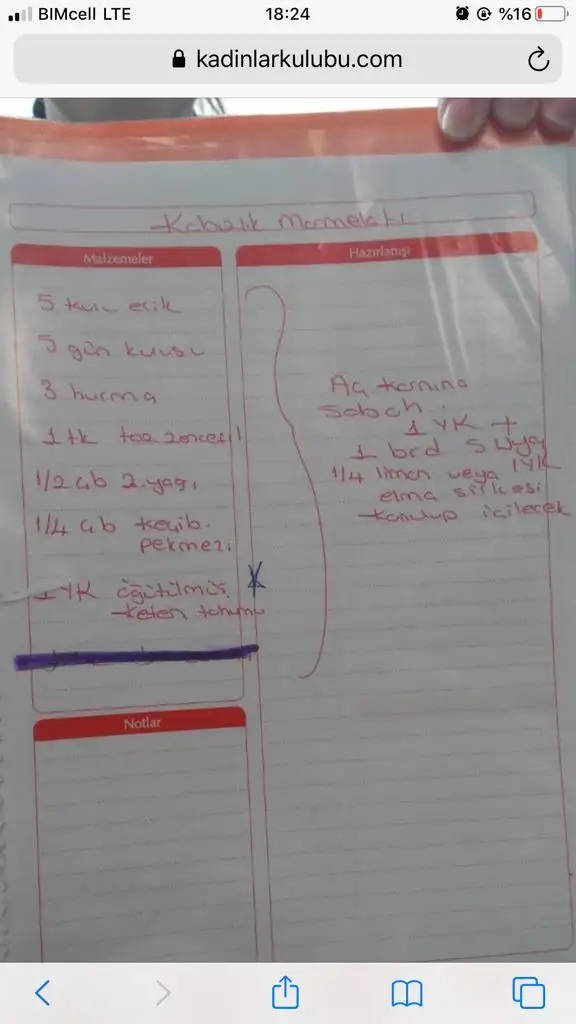 BIMcell LTE 18:24 %16
kadinlarkulubu.com
Kabızlık Marmelatı
Malzemeler
5 kuru erik
5 gün kurusu
3 hurma
1 tk toz zencefil
1/2 çb z.yağı
1/4 çb keçib.
pekmezi
1 YK öğütülmüş
keten tohumu
Notlar
Hazırlanışı
Aç karnına
Sabah
1 YK +
1 brd suya
1/4 limon veya 1YK
elma sirkesi
konulup içilecek